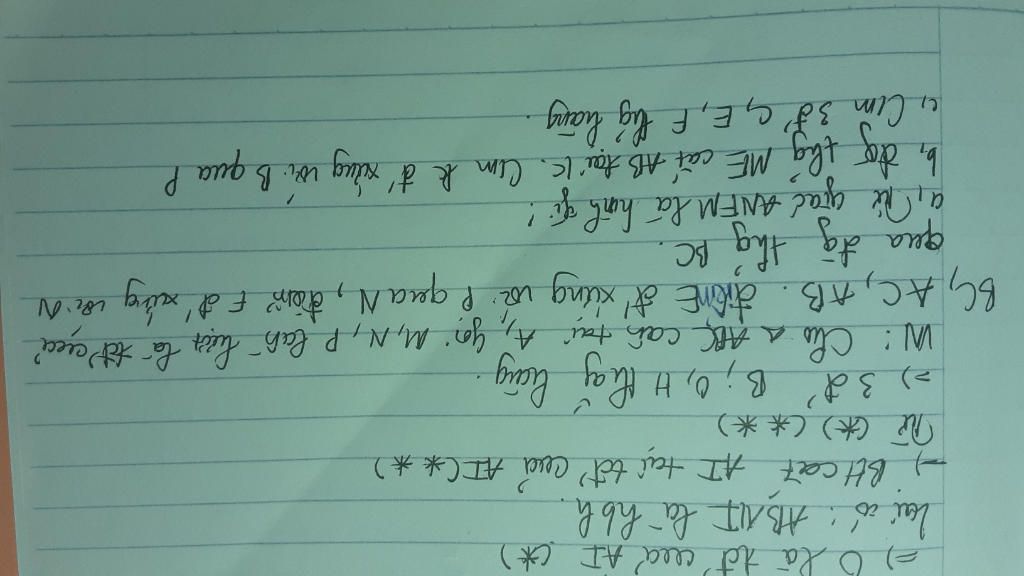 =) O là tđ' của AI (*)
Lại có : ABNI là hbh
=) BH cắt AI tại tđ' của AI (**)
Từ (*) (**)
=) 3 đ' B; O, H thẳng hàng.
VN: Cho △ ABC cân tại A, gọi M, N, P lần lượt là tđ' của
BC, AC, AB. Điểm E đ' xứng với P qua N, điểm F đ' xứng với N
qua đg thg BC.
a, Tứ giác ANFM là hình gì!
b, đg thg ME cắt AB tại K. Cm K đ' xứng với B qua P
c, Cm 3 đ' C, E, F thg hàng.